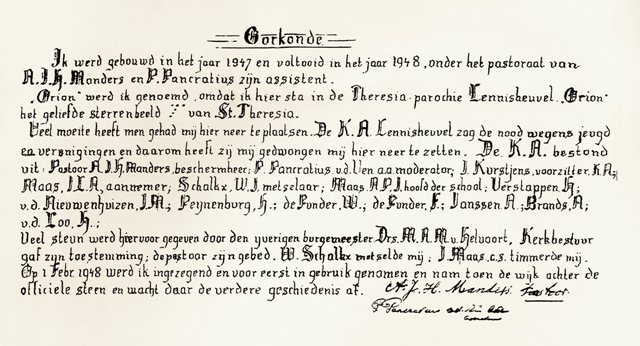 Oorkonde
Ik werd gebouwd in het jaar 1947 en voltooid in het jaar 1948, onder het pastoraat van
A.J.H. Manders en P. Pancratius zijn assistent.
"Orion" werd ik genoemd, omdat ik hier sta in de Theresia-parochie Lennisheuvel. "Orion"
het geliefde sterrenbeeld van St. Theresia.
Veel moeite heeft men gehad mij hier neer te plaatsen. De K.A. Lennisheuvel zag de nood wegens jeugd
en verenigingen en daarom heeft zij mij gedwongen mij hier neer te zetten. De K.A. bestond
uit: Pastoor A.J.H. Manders, beschermheer; P. Pancratius v.d. Ven a.a. moderator; J. Kurstjens, voorzitter K.A;
Maas, J.L.A, aannemer; Schalkx, W.J. metselaar; Maas, A.P.J. hoofd der school; Verstappen, H;
v.d. Nieuwenhuizen, J.M; Peijnenburg, H.; de Punder, W.; de Punder, F; Janssen, A.; Brands, A;
v.d. Loo, H.;
Veel steun werd hiervoor gegeven door den ijverigen burgemeester Drs. M.A.M. v. Helvoort, Kerkbestuur
gaf zijn toestemming; de pastoor zijn gebed. W. Schalkx metselde mij; J. Maas, c.s. timmerde mij.
Op 1 Febr. 1948 werd ik ingezegend en voor eerst in gebruik genomen en nam toen de wijk achter de
officiele steen en wacht daar de verdere geschiedenis af. A.J.H. Manders, Pastoor.
P. Pancratius